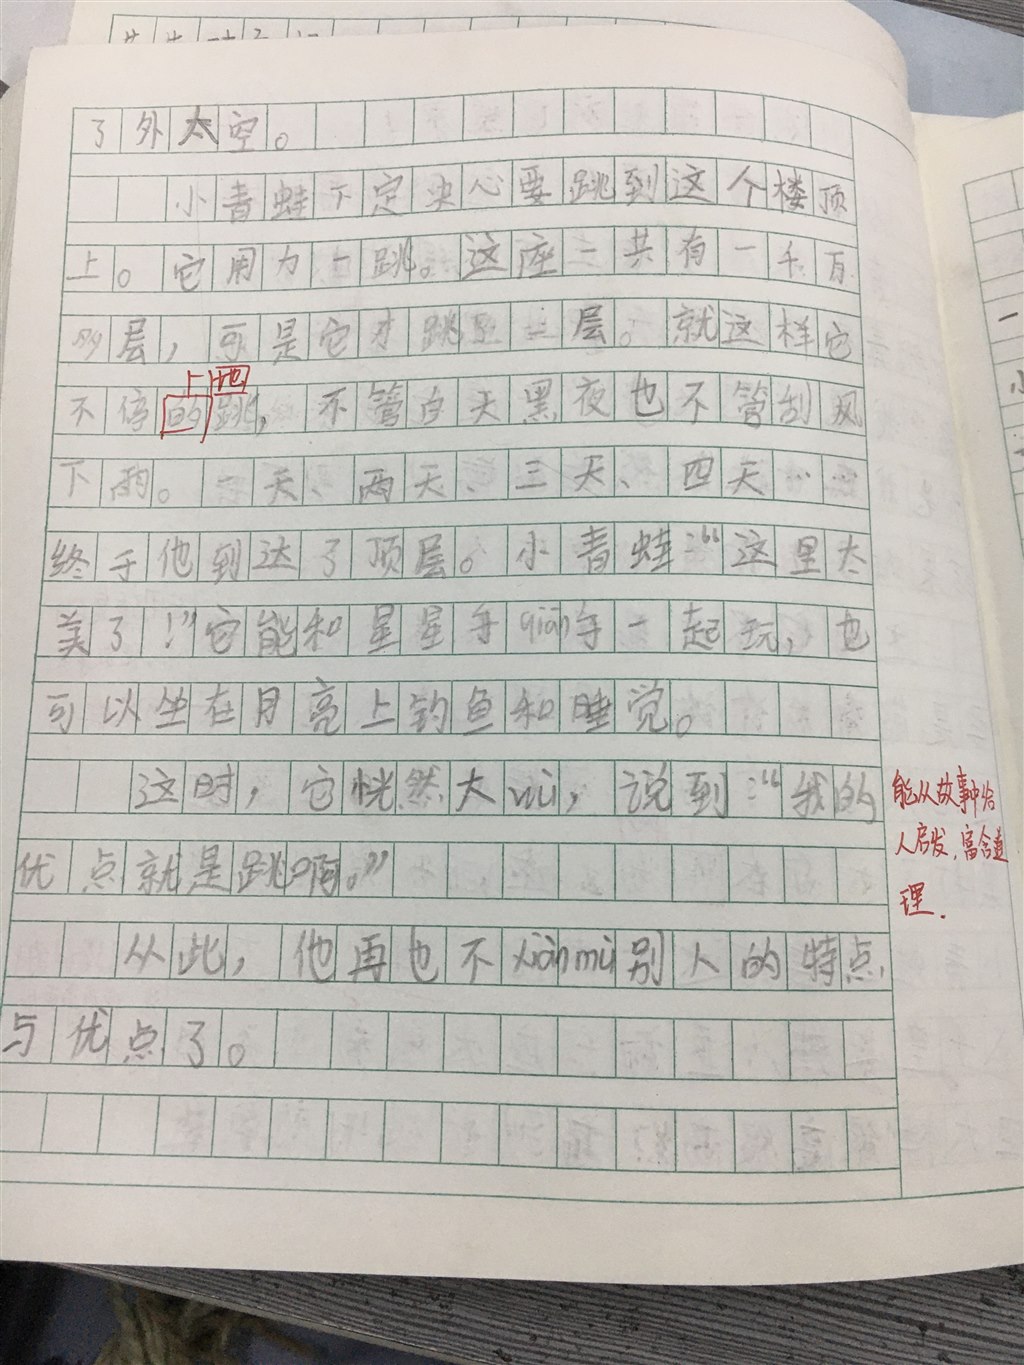 了外太空。
小青蛙下定决心要跳到这个楼顶
上。它用力一跳。这座一共有一千万
多层，可是它才跳至二层。就这样它
地
不停的跳，不管白天黑夜也不管刮风
下雨。一天、两天、三天、四天……
终于他到达了顶层。小青蛙：“这里太
美了！”它能和星星手qiān手一起玩，也
可以坐在月亮上钓鱼和睡觉。
这时，它恍然大wù，说到：“我的
优点就是跳啊。”
从此，他再也不xiànmù别人的特点
与优点了。
能从故事中给
人启发，富含道
理.